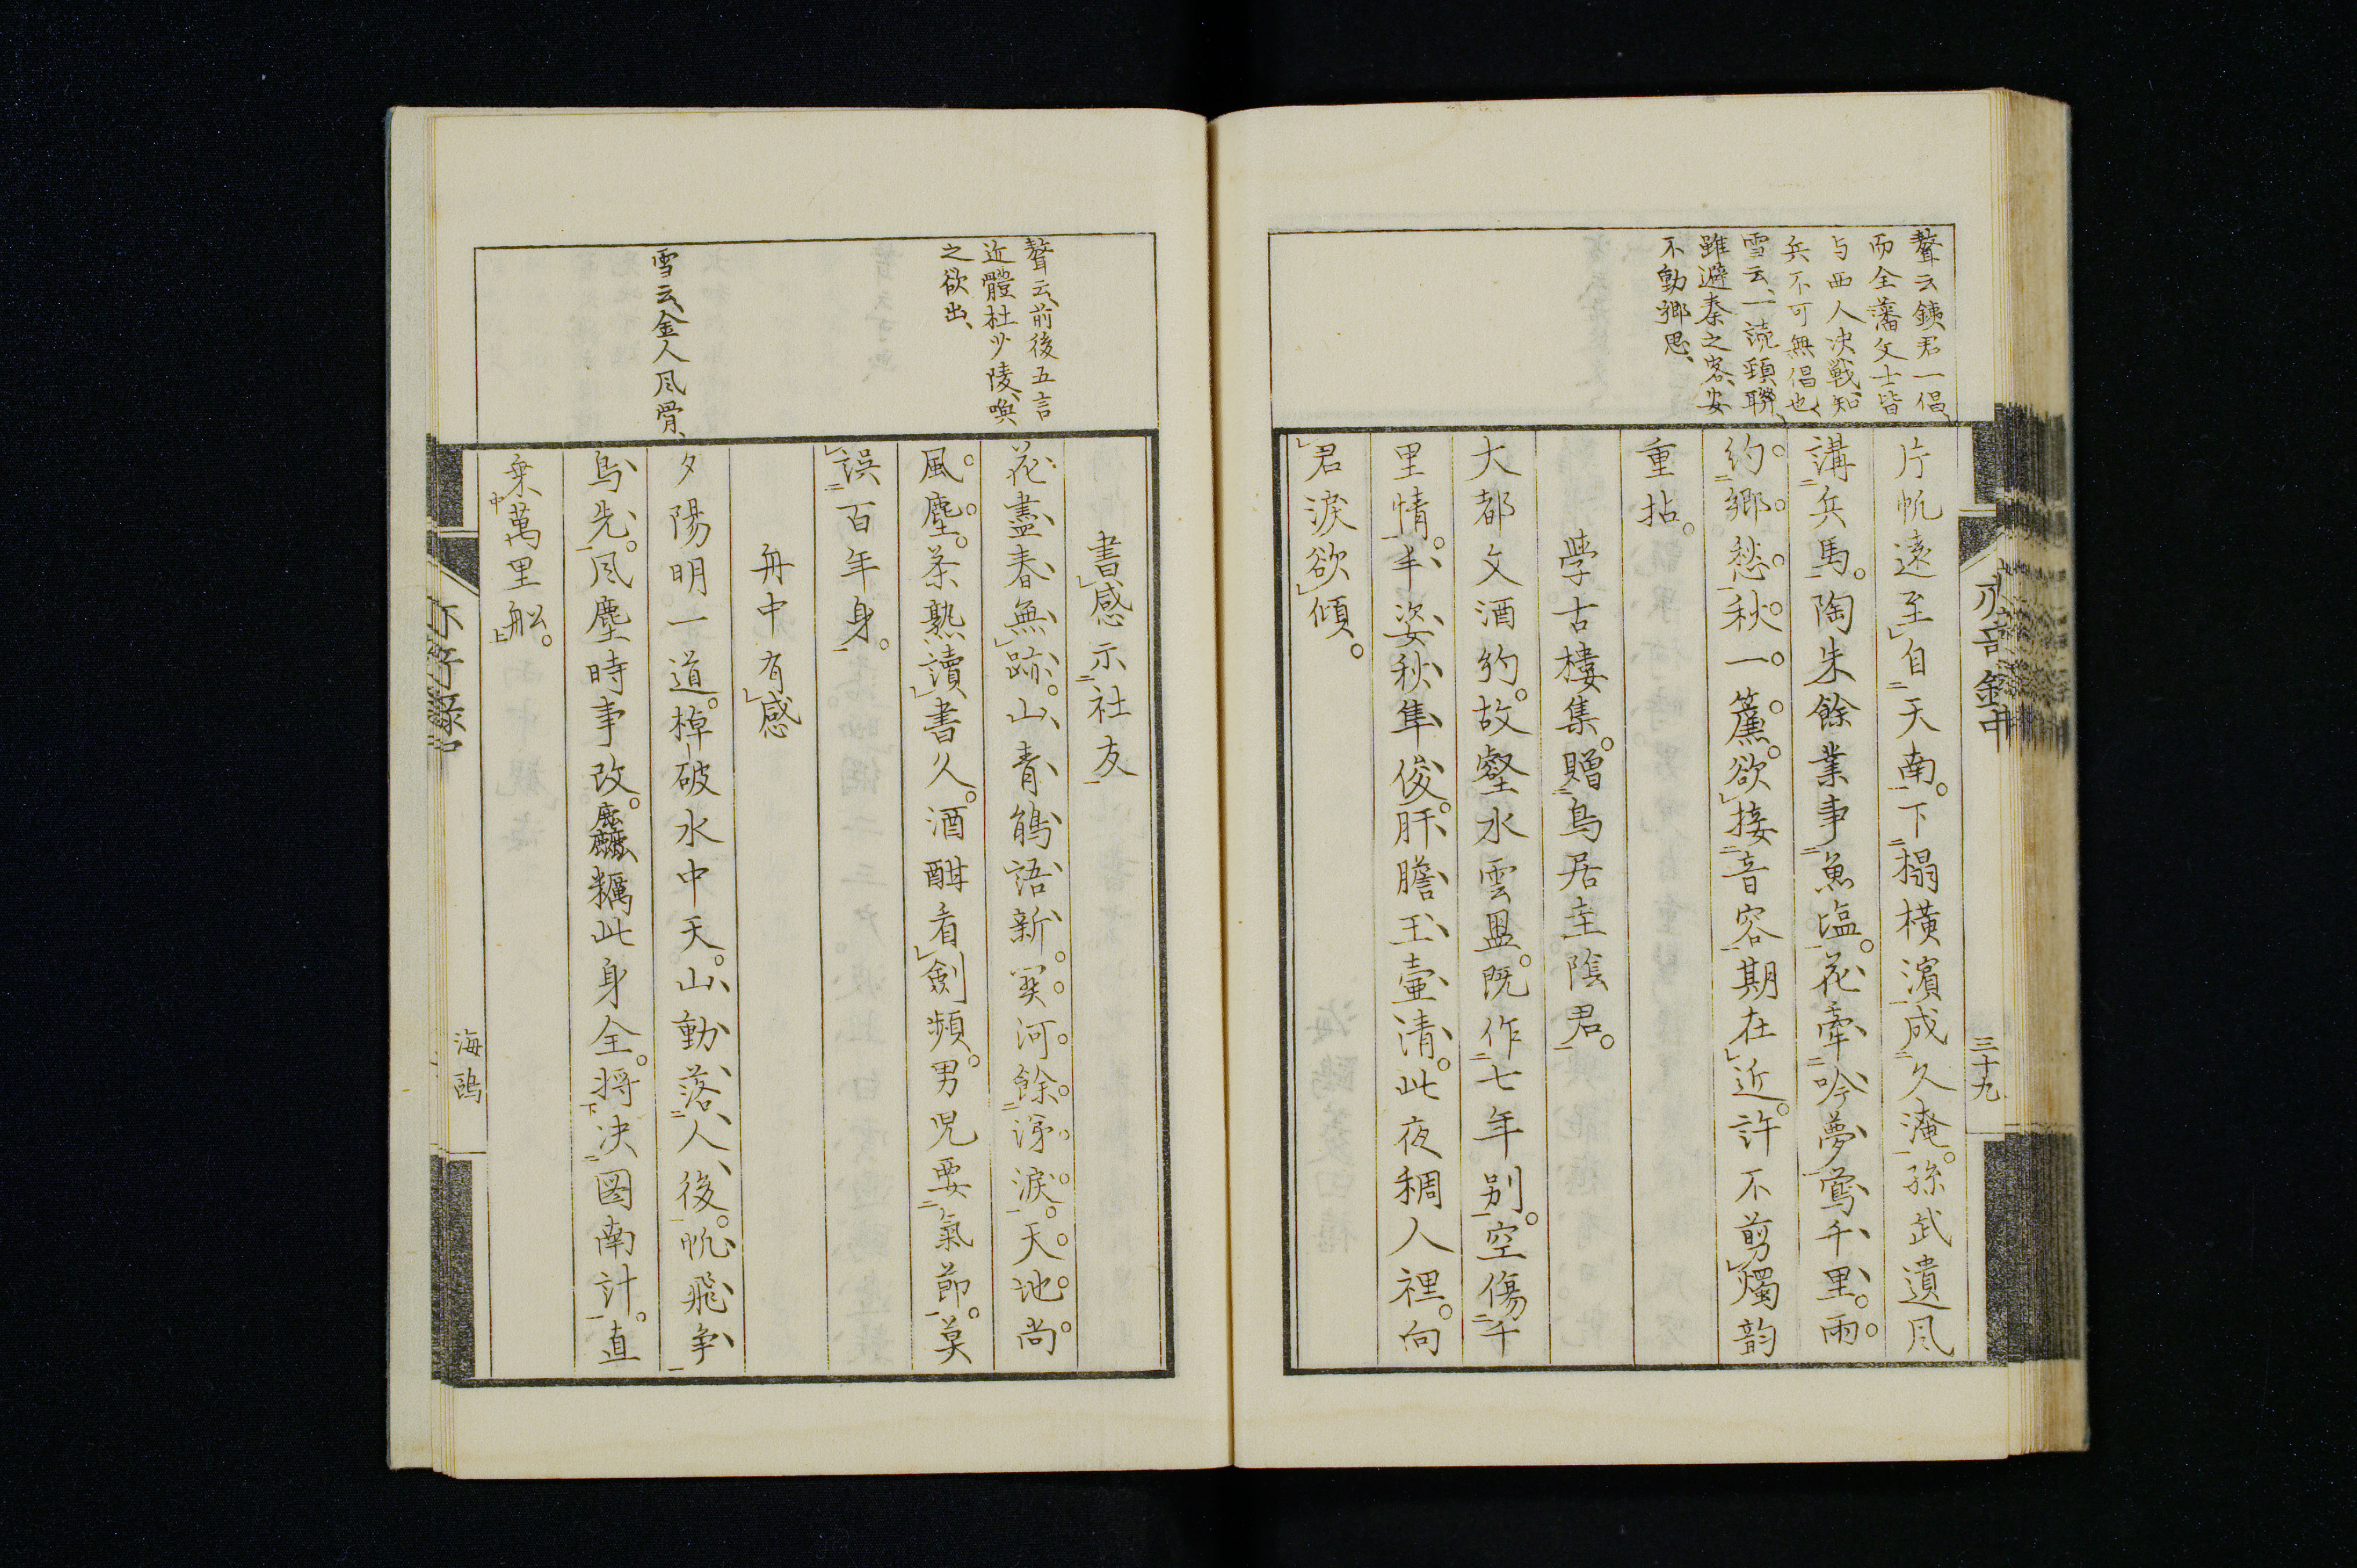 聱云銕君一倡、
而全藩文士皆
与西人决戦、知
兵不可無倡也、
雪云、一読頚聯、
雖避秦之客、安
不動郷思、
片帆遠至自天南。下榻横濱成久淹。孫武遺風
講兵馬。陶朱餘業事魚塩。花牽吟夢鶯千里。雨
約郷愁秋一簾。欲接音容期在近。許不剪燭韵
重拈。
学古楼集。贈鳥居圭陰君。
大都文酒約。故壑水雲盟。既作七年别。空傷千
里情。丰姿秋隼俊。肝膽玉壷清。此夜稠人裡。向
君淚欲傾。
三十九
聱云、前後五言
近體杜少陵、喚
之欲出、
雪云、金人风骨、
書感示社友
花盡春無跡。山青鵑語新。関河餘涕淚。天地尚
風塵。茶熟讀書久。酒酣看劍頻。男児要氣節。莫
誤百年身。
舟中有感
夕陽明一道。棹破水中天。山動落人後。帆飛争
鳥先。风塵時事改。麤糲此身全。将决图南計。直
乗萬里船。
海鷗